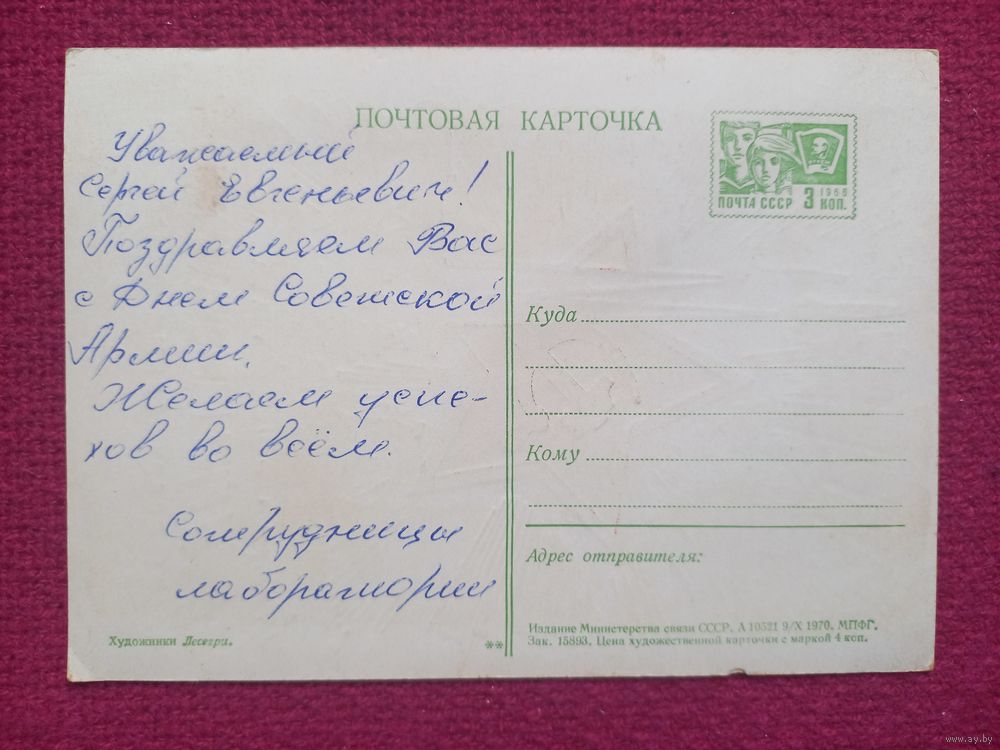 ПОЧТОВАЯ КАРТОЧКА
Уважаемый
Сергей Евгеньевич!
Поздравляем Вас
с Днем Советской
Армии.
Желаем успе-
хов во всём.
Сотрудницы
лаборатории
Художники Лесегри.
**
ПОЧТА СССР 3 КОП.
1966
Куда
Кому
Адрес отправителя:
Издание Министерства связи СССР. А 10521 9/X 1970. МПФГ.
Зак. 15893. Цена художественной карточки с маркой 4 коп.
www.ay.by